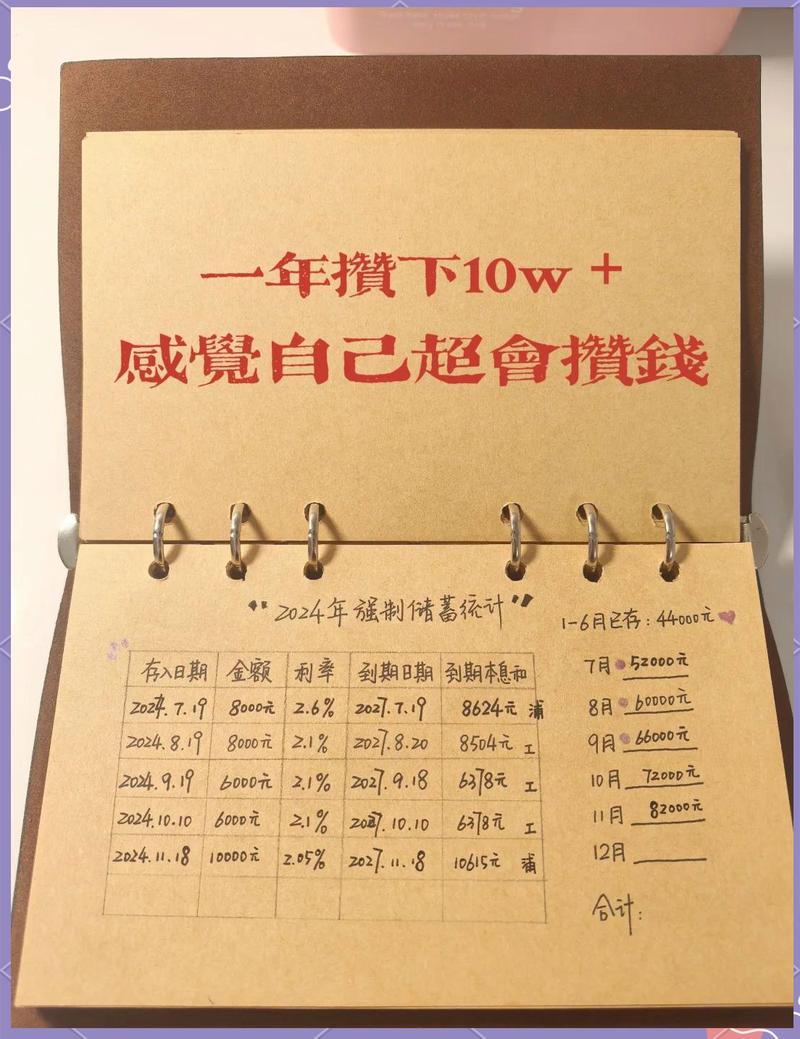 一年攢下10w +
感覺自己超會攢錢
"2024年强制储蓄统计"
1-6月已存：44000元
存入日期 金额 利率 到期日期 到期本息和
2024.7.19 8000元 2.6% 2027.7.19 8624元 浦
2024.8.19 8000元 2.1% 2027.8.20 8504元 工
2024.9.19 6000元 2.1% 2027.9.18 6378元 工
2024.10.10 6000元 2.1% 2027.10.10 6378元 工
2024.11.18 10000元 2.05% 2027.11.18 10615元 浦
7月 52000元
8月 60000元
9月 66000元
10月 72000元
11月 82000元
12月
合计：